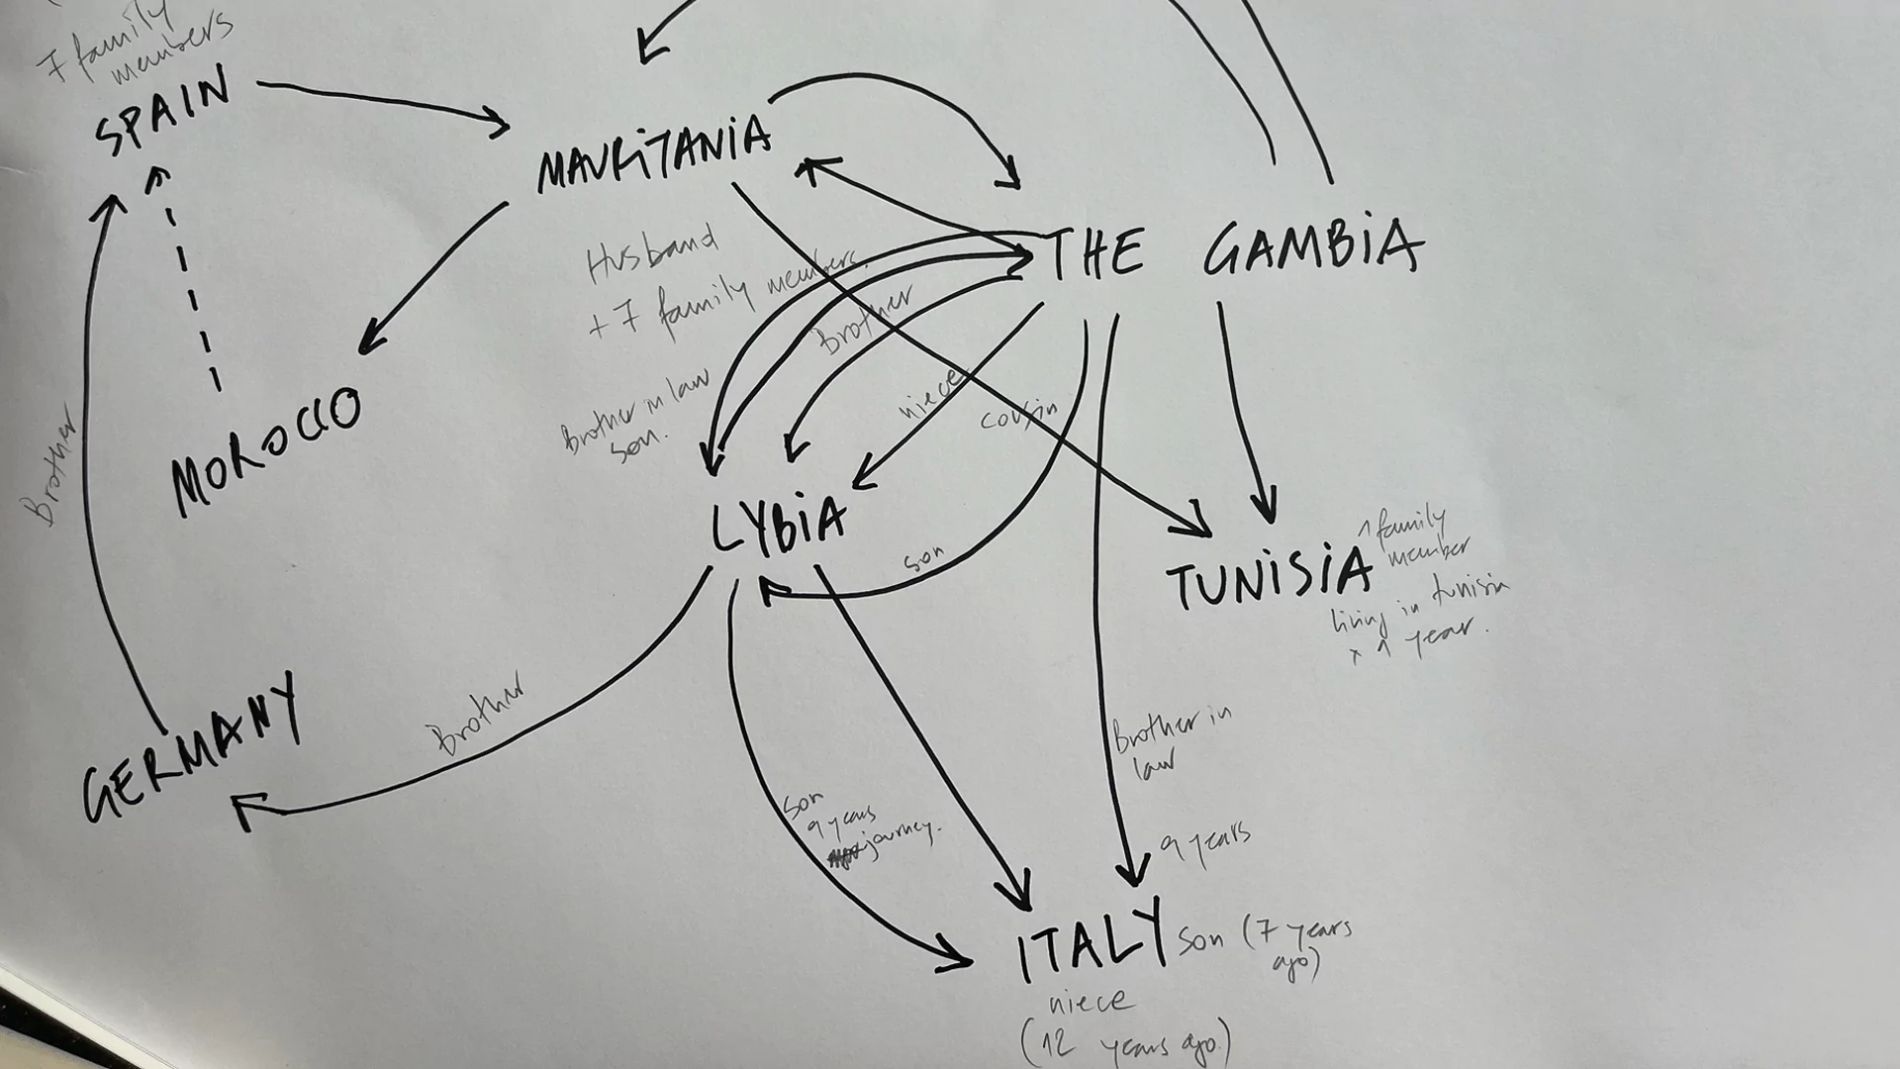 7 family
members
SPAIN
MAURiTANiA
THE GAMBiA
Husband
+ 7 family members.
Brother
Brother in law
son.
niece
cousin
MOROCCO
Brother
LYBiA
son
TUNiSiA
1 family
member
living in tunisia
x 1 year.
GERMANY
Brother
Brother in
law
son
9 years
journey.
9 years
ITALY son (7 years
ago)
niece
(12 years ago)